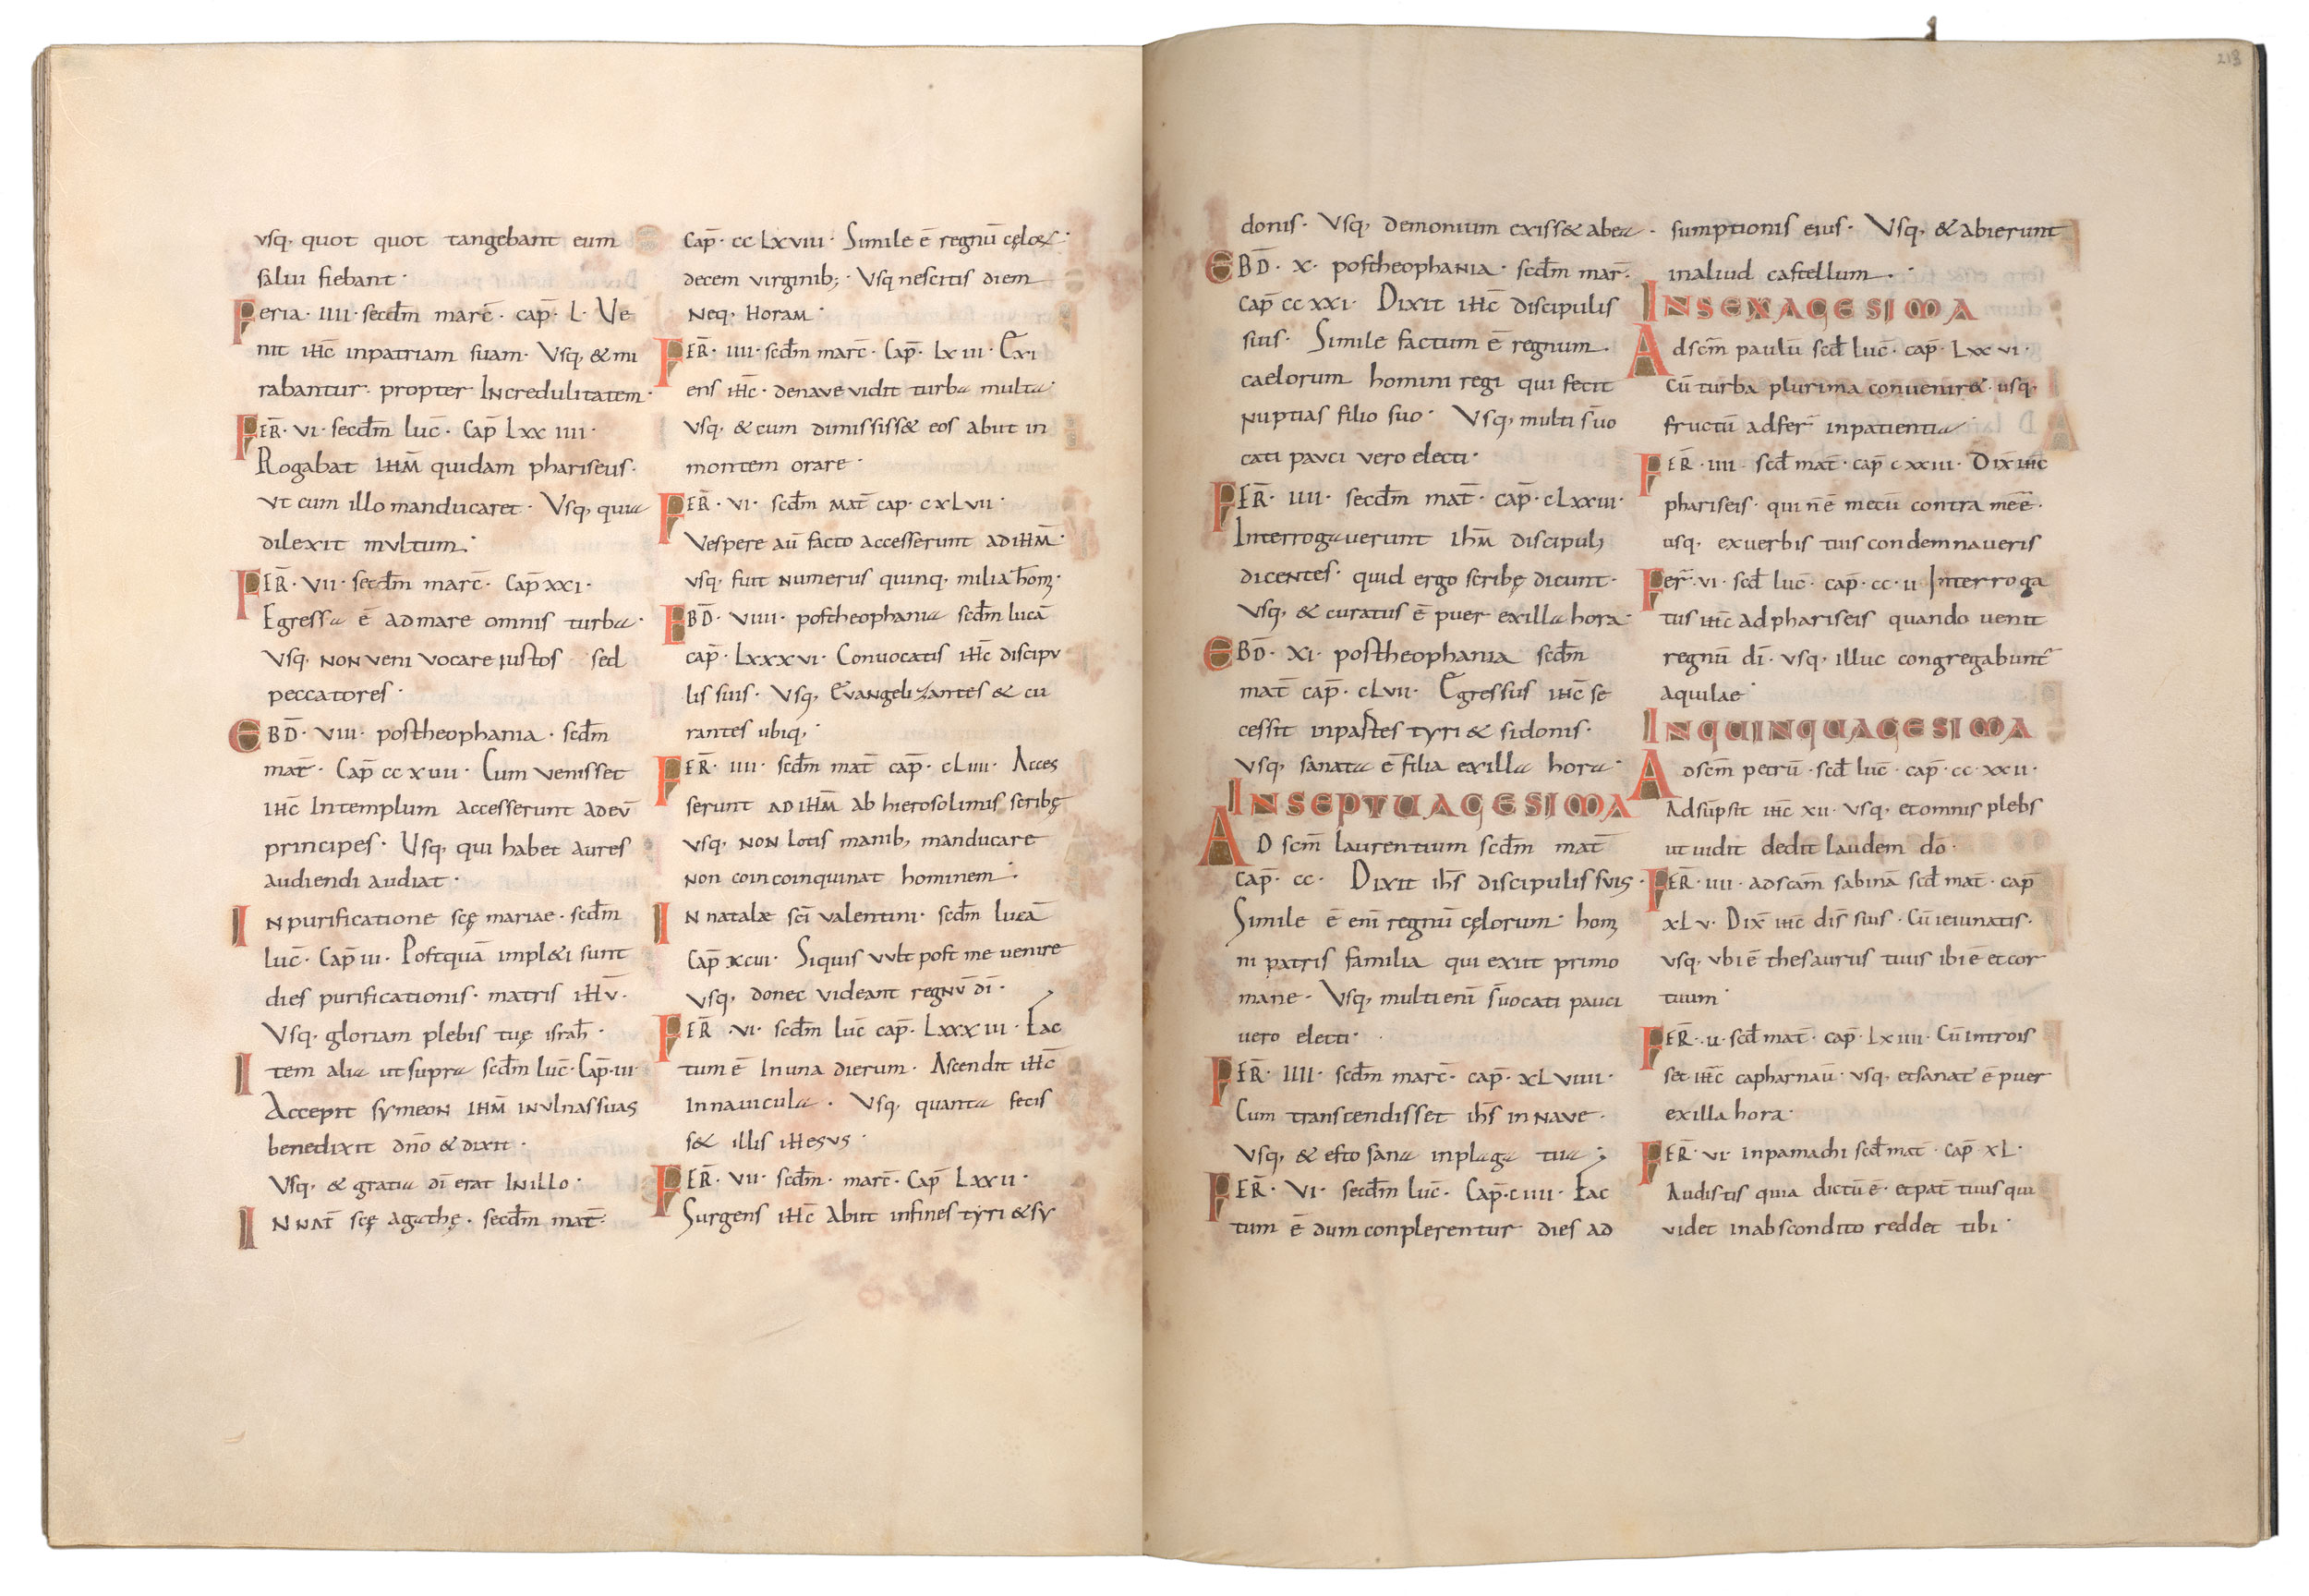 usq, quot quot tangebant eum
salui fiebant·
Feria· IIII· secdm̄ marc̄· cap̄· L· Ve
nit ihc̄ inpatriam suam· Vsq, & mi
rabantur· propter Incredulitatem·
FER̄· VI· secdm̄ luc̄· Cap̄ Lxx IIII·
Rogabat IHM̄ quidam phariseus·
ut cum illo manducaret· Vsq, quia
dilexit multum·
FER̄· VII· secdm̄ marc̄· Cap̄ XXI·
Egressa ē ad mare omnis turba·
Vsq, NON veni vocare iustos sed
peccatores·
EBD̄· VIII· post heophania· scdm̄
mat̄· Cap̄ cc xuii· Cum venisset
ihc̄ Intemplum accesserunt adeū
principes· Usq, qui habet aures
audiendi audiat·
IN purificatione scę mariae· scdm̄
luc̄· Cap̄ iii· Postquā impl&i sunt
dies purificationis· matris ihū·
Vsq, gloriam plebis tuę israhl̄·
Item alia ut supra scdm̄ luc̄· Cap̄· III·
Accepit symeon IHM̄ INulnas suas
benedixit dn̄o & dixit·
Vsq, & gratia dī erat INillo·
INNAT̄ scę agathę· secdm̄ mat̄·
Cap̄· cc Lxviii· Simile ē regnū cęloꝝ·
decem virginib;· Vsq nescitis diem
Neq, HORAM·
FER̄· IIII· scdm̄ marc̄· Cap̄· Lx III· Exi
ens ihc̄· denave vidit turba multa·
Vsq, & cum dimississ& eos abiit in
montem orare·
FER̄· VI· scdm̄ MAT̄ cap· cxLvii·
Vespere aū facto accesserunt ADIHM̄·
usq, fuit Numerus quinq, milia hom̄·
EBD̄· VIIII· postheophania scdm̄ lucā
cap̄· Lxxxvi· Conuocatis ihc̄ discipu
lis suis· Usq, Evangelizantes & cu
rantes ubiq,·
FER̄· IIII· scdm̄ mat̄ cap̄· cLiiii· Acces
serunt ADIHM̄ ab hierosolimis scribę
usq, NON Lotis manib, manducare
NON coincoinquinat hominem·
IN natalæ scī valentini· scdm̄ lucā
Cap̄ xciii· Siquis uult post me uenire
Vsq, donec videant regnū dī·
FER̄· VI· scdm̄ luc̄ cap̄· Lxxxiii· Fac
tum ē In una dierum· Ascendit ihc̄
Innauicula· Vsq, quanta fecis
s& illis ihesus·
FER̄· VII· scdm̄· marc̄· Cap̄ Lxxii·
Surgens ihc̄ Abiit infines tyri & sy
donis· Vsq, demonium exiss& abea·
EBD̄· X· postheophania· scdm̄ mar̄·
Cap̄ cc xxi· Dixit ihc̄ discipulis
suis· Simile factum ē regnum·
caelorum homini regi qui fecit
Nuptias filio suo· Vsq, multi s̄uo
cati pauci vero electi·
FER̄· IIII· secdm̄ mat̄· cap̄· cLxxiii·
Interrogaverunt ihm̄ discipuli
dicentes· quid ergo scribę dicunt·
Vsq, & curatus ē puer exilla hora·
EBD̄· XI· postheophania scdm̄
mat̄ cap̄· cLvii· Egressus ihc̄ se
cessit inpartes tyri & sidonis·
Vsq, sanata ē filia exilla hora·
IN SEPTUAGESIMA
AD scm̄ laurentium scdm̄ mat̄
cap̄· cc· Dixit ihs̄ discipulis suis·
Simile ē enī regnū cęlorum homi
ni patris familia qui exiit primo
mane· Vsq, multi enī s̄uocati pauci
uero electi·
FER̄· IIII· scdm̄ marc̄· cap̄· xLviiii·
Cum transcendisset ihs̄ in Nave·
Vsq, & esto sana inplaga tua;
FER̄· VI· secdm̄ luc̄· Cap̄· ciiii· Fac
tum ē dum conplerentur dies ad
sumptionis eius· Vsq, & abierunt
inaliud castellum·
IN SEXAGESIMA
Adscm̄ paulū scd̄ luc̄· cap̄· Lxxvi·
Cū turba plurima convenir&· usq,
fructū adfer̄ inpatientia
FER̄· IIII· scd̄ mat̄· cap̄ cxxiii· Dix̄ ihc̄
phariseis· qui n̄ ē mecū contra mē ē·
usq, exuerbis tuis condemnaueris
Fer̄· VI· scd̄ luc̄· cap̄· cc· II Interroga
tus ihc̄ ad phariseis quando uenit
regnū dī· usq, illuc congregabunt̄
aquilae·
IN QUINQUAGESIMA
Adscm̄ petrū· scd̄ luc̄· cap̄· cc· xxii·
Adsūpsit ihc̄ xii· usq, et omnis plebs
ut uidit dedit laudem dō·
FER̄· IIII· adscam̄ sabinā scd̄ mat̄· cap̄
xLv· Dix̄ ihc̄ dis̄ suis· Cū ieiunatis·
usq, ubi ē thesaurus tuus ibi ē et cor
tuum·
FER̄· U· scd̄ mat̄· cap̄· Lxiiii· Cū introis
set ihc̄ capharnaū· usq, et sanat̄ ē puer
exilla hora·
FER̄· VI· inpamachi scd̄ mat̄· cap̄ xL·
Audistis quia dictū ē· et pat̄ tuus qui
videt inabscondito reddet tibi·
218